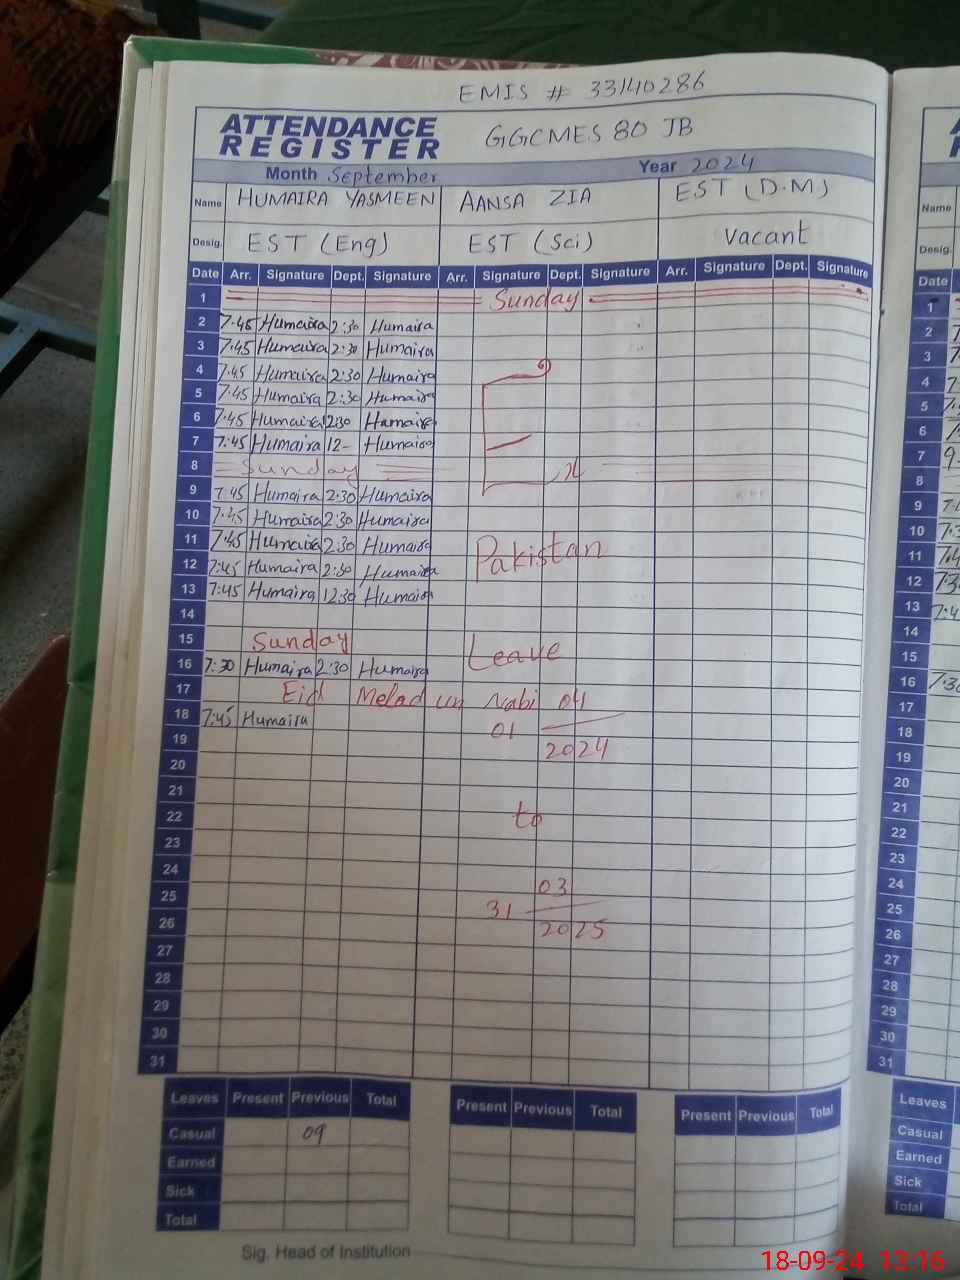 EMIS # 33140286
ATTENDANCE REGISTER GGCMES 80 JB
Month September Year 2024
Name HUMAIRA YASMEEN AANSA ZIA EST (D.M)
Desig. EST (Eng) EST (Sci) Vacant
Date Arr. Signature Dept. Signature Arr. Signature Dept. Signature Arr. Signature Dept. Signature
1 Sunday
2 7:45 Humaira 2:30 Humaira
3 7:45 Humaira 2:30 Humaira
4 7:45 Humaira 2:30 Humaira
5 7:45 Humaira 2:30 Humaira
6 7:45 Humaira 1230 Humaira
7 7:45 Humaira 12- Humaira
8 Sunday
9 7:45 Humaira 2:30 Humaira
10 7:45 Humaira 2:30 Humaira
11 7:45 Humaira 2:30 Humaira Pakistan
12 7:45 Humaira 2:30 Humaira
13 7:45 Humaira 12:30 Humaira
14
15 Sunday Leave
16 7:30 Humaira 2:30 Humaira
17 Eid Melad un Nabi 04
18 7:45 Humaira 01
19 2024
20
21
22 to
23
24
25 03
26 31 2025
27
28
29
30
31
Leaves Present Previous Total Present Previous Total Present Previous Total
Casual 09
Earned
Sick
Total
Sig. Head of Institution
Name
Desig.
Date
1
2
3
4
5
6
7
8
9
10
11
12
13
14
15
16 7:30
17
18
19
20
21
22
23
24
25
26
27
28
29
30
31
Leaves
Casual
Earned
Sick
Total
18-09-24 13:16